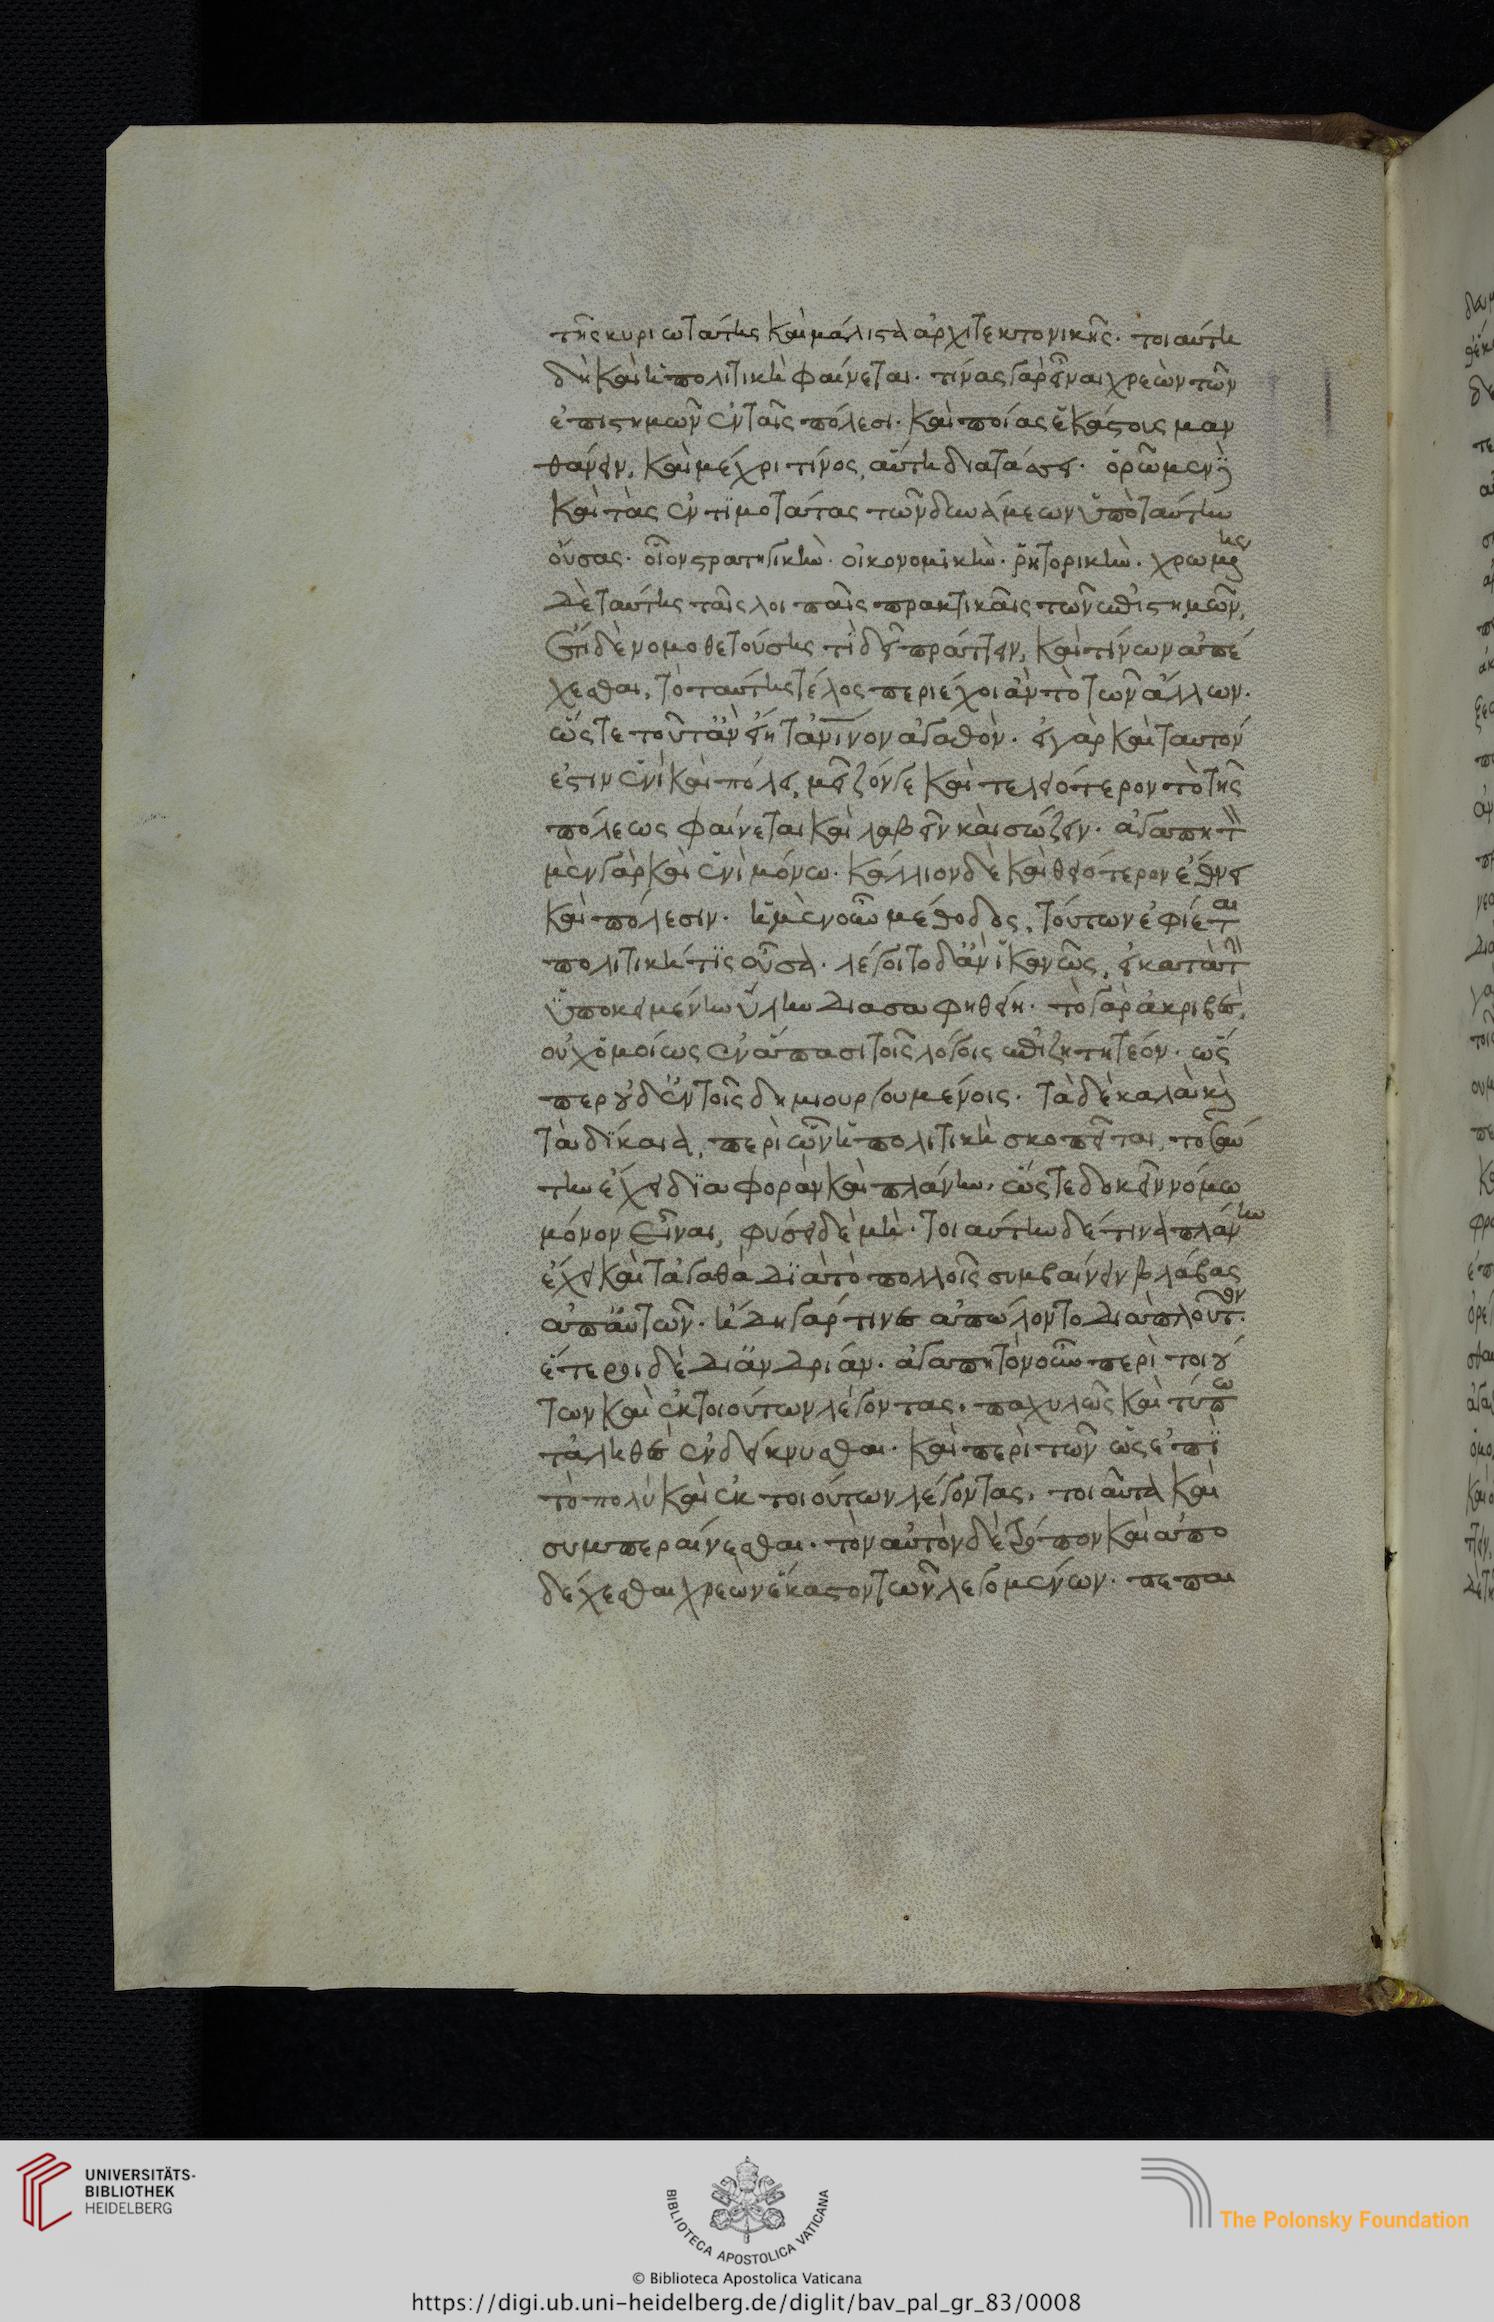 τῆς κυριωτάτης καὶ μάλιστα ἀρχιτεκτονικῆς. τοιαύτη
δὴ καὶ ἡ πολιτικὴ φαίνεται. τίνας γὰρ εἶναι χρεὼν τῶν
ἐπιστημῶν ἐν ταῖς πόλεσι. καὶ ποίας ἑκάστους μαν
θάνειν, καὶ μέχρι τίνος, αὕτη διατάσσει. ὁρῶμεν δὲ
καὶ τὰς ἐντιμοτάτας τῶν δυνάμεων ὑπὸ ταύτην
οὔσας. οἷον στρατηγικὴν. οἰκονομικὴν. ῥητορικὴν. χρωμένης
δὲ ταύτης ταῖς λοιπαῖς πρακτικαῖς τῶν ἐπιστημῶν,
ἔτι δὲ νομοθετούσης τί δεῖ πράττειν, καὶ τίνων ἀπέ
χεσθαι, τὸ ταύτης τέλος περιέχοι ἂν τὸ τῶν ἄλλων.
ὥστε τοῦτ' ἂν εἴη τ' ἀνινον ἀγαθὸν. εἰ γὰρ καὶ ταυτόν
ἐστιν ἑνὶ καὶ πόλει, μεῖζόν γε καὶ τελειότερον τὸ τῆς
πόλεως φαίνεται καὶ λαβεῖν καὶ σώζειν. ἀγαπητὸν
μὲν γὰρ καὶ ἑνὶ μόνω. κάλλιον δὲ καὶ θειότερον ἔθνει
καὶ πόλεσιν. ἡ μὲν οὖν μέθοδος, τούτων ἐφίεται
πολιτική τις οὖσα. λέγοιτο δ' ἂν ἱκανῶς, εἰ κατὰ τὴν
ὑποκειμένην ὕλην διασαφηθείη. τὸ γὰρ ἀκριβὲς,
οὐχ ὁμοίως ἐν ἅπασι τοῖς λόγοις ἐπιζητητέον. ὥσ
περ οὐδ' ἐν τοῖς δημιουργουμένοις. τὰ δὲ καλὰ καὶ
τὰ δίκαια, περὶ ὧν ἡ πολιτικὴ σκοπεῖται, τοσαύ
την ἔχει διαφορὰν καὶ πλάνην. ὥστε δοκεῖν νόμω
μόνον εἶναι, φύσει δὲ μὴ. τοιαύτην δέ τινα πλάνην
ἔχει καὶ τἀγαθὰ διὰ τὸ πολλοῖς συμβαίνειν βλάβας
ἀπ' αὐτῶν. ἤδη γάρ τινες ἀπώλοντο διὰ πλοῦτον.
ἕτεροι δὲ δι' ἀνδρίαν. ἀγαπητὸν οὖν περὶ τοιού
των καὶ ἐκ τοιούτων λέγοντας, παχυλῶς καὶ τύπω
τἀληθὲς ἐνδείκνυσθαι. καὶ περὶ τῶν ὡς ἐπὶ
τὸ πολὺ καὶ ἐκ τοιούτων λέγοντας, τοιαῦτα καὶ
συμπεραίνεσθαι. τὸν αὐτὸν δὲ τρόπον καὶ ἀπο
δέχεσθαι χρεὼν ἕκαστον τῶν λεγομένων. πεπαι
UNIVERSITÄTS-
BIBLIOTHEK
HEIDELBERG
BIBLIOTECA APOSTOLICA VATICANA
The Polonsky Foundation
© Biblioteca Apostolica Vaticana
https://digi.ub.uni-heidelberg.de/diglit/bav_pal_gr_83/0008